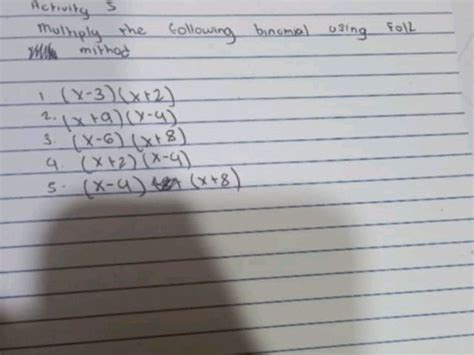 Activity 5
Multiply the following binomial using Foil
mithod
1. (x-3)(x+2)
2. (x+9)(x-4)
3. (x-6)(x+8)
4. (x+2)(x-4)
5. (x-4) (x+8)